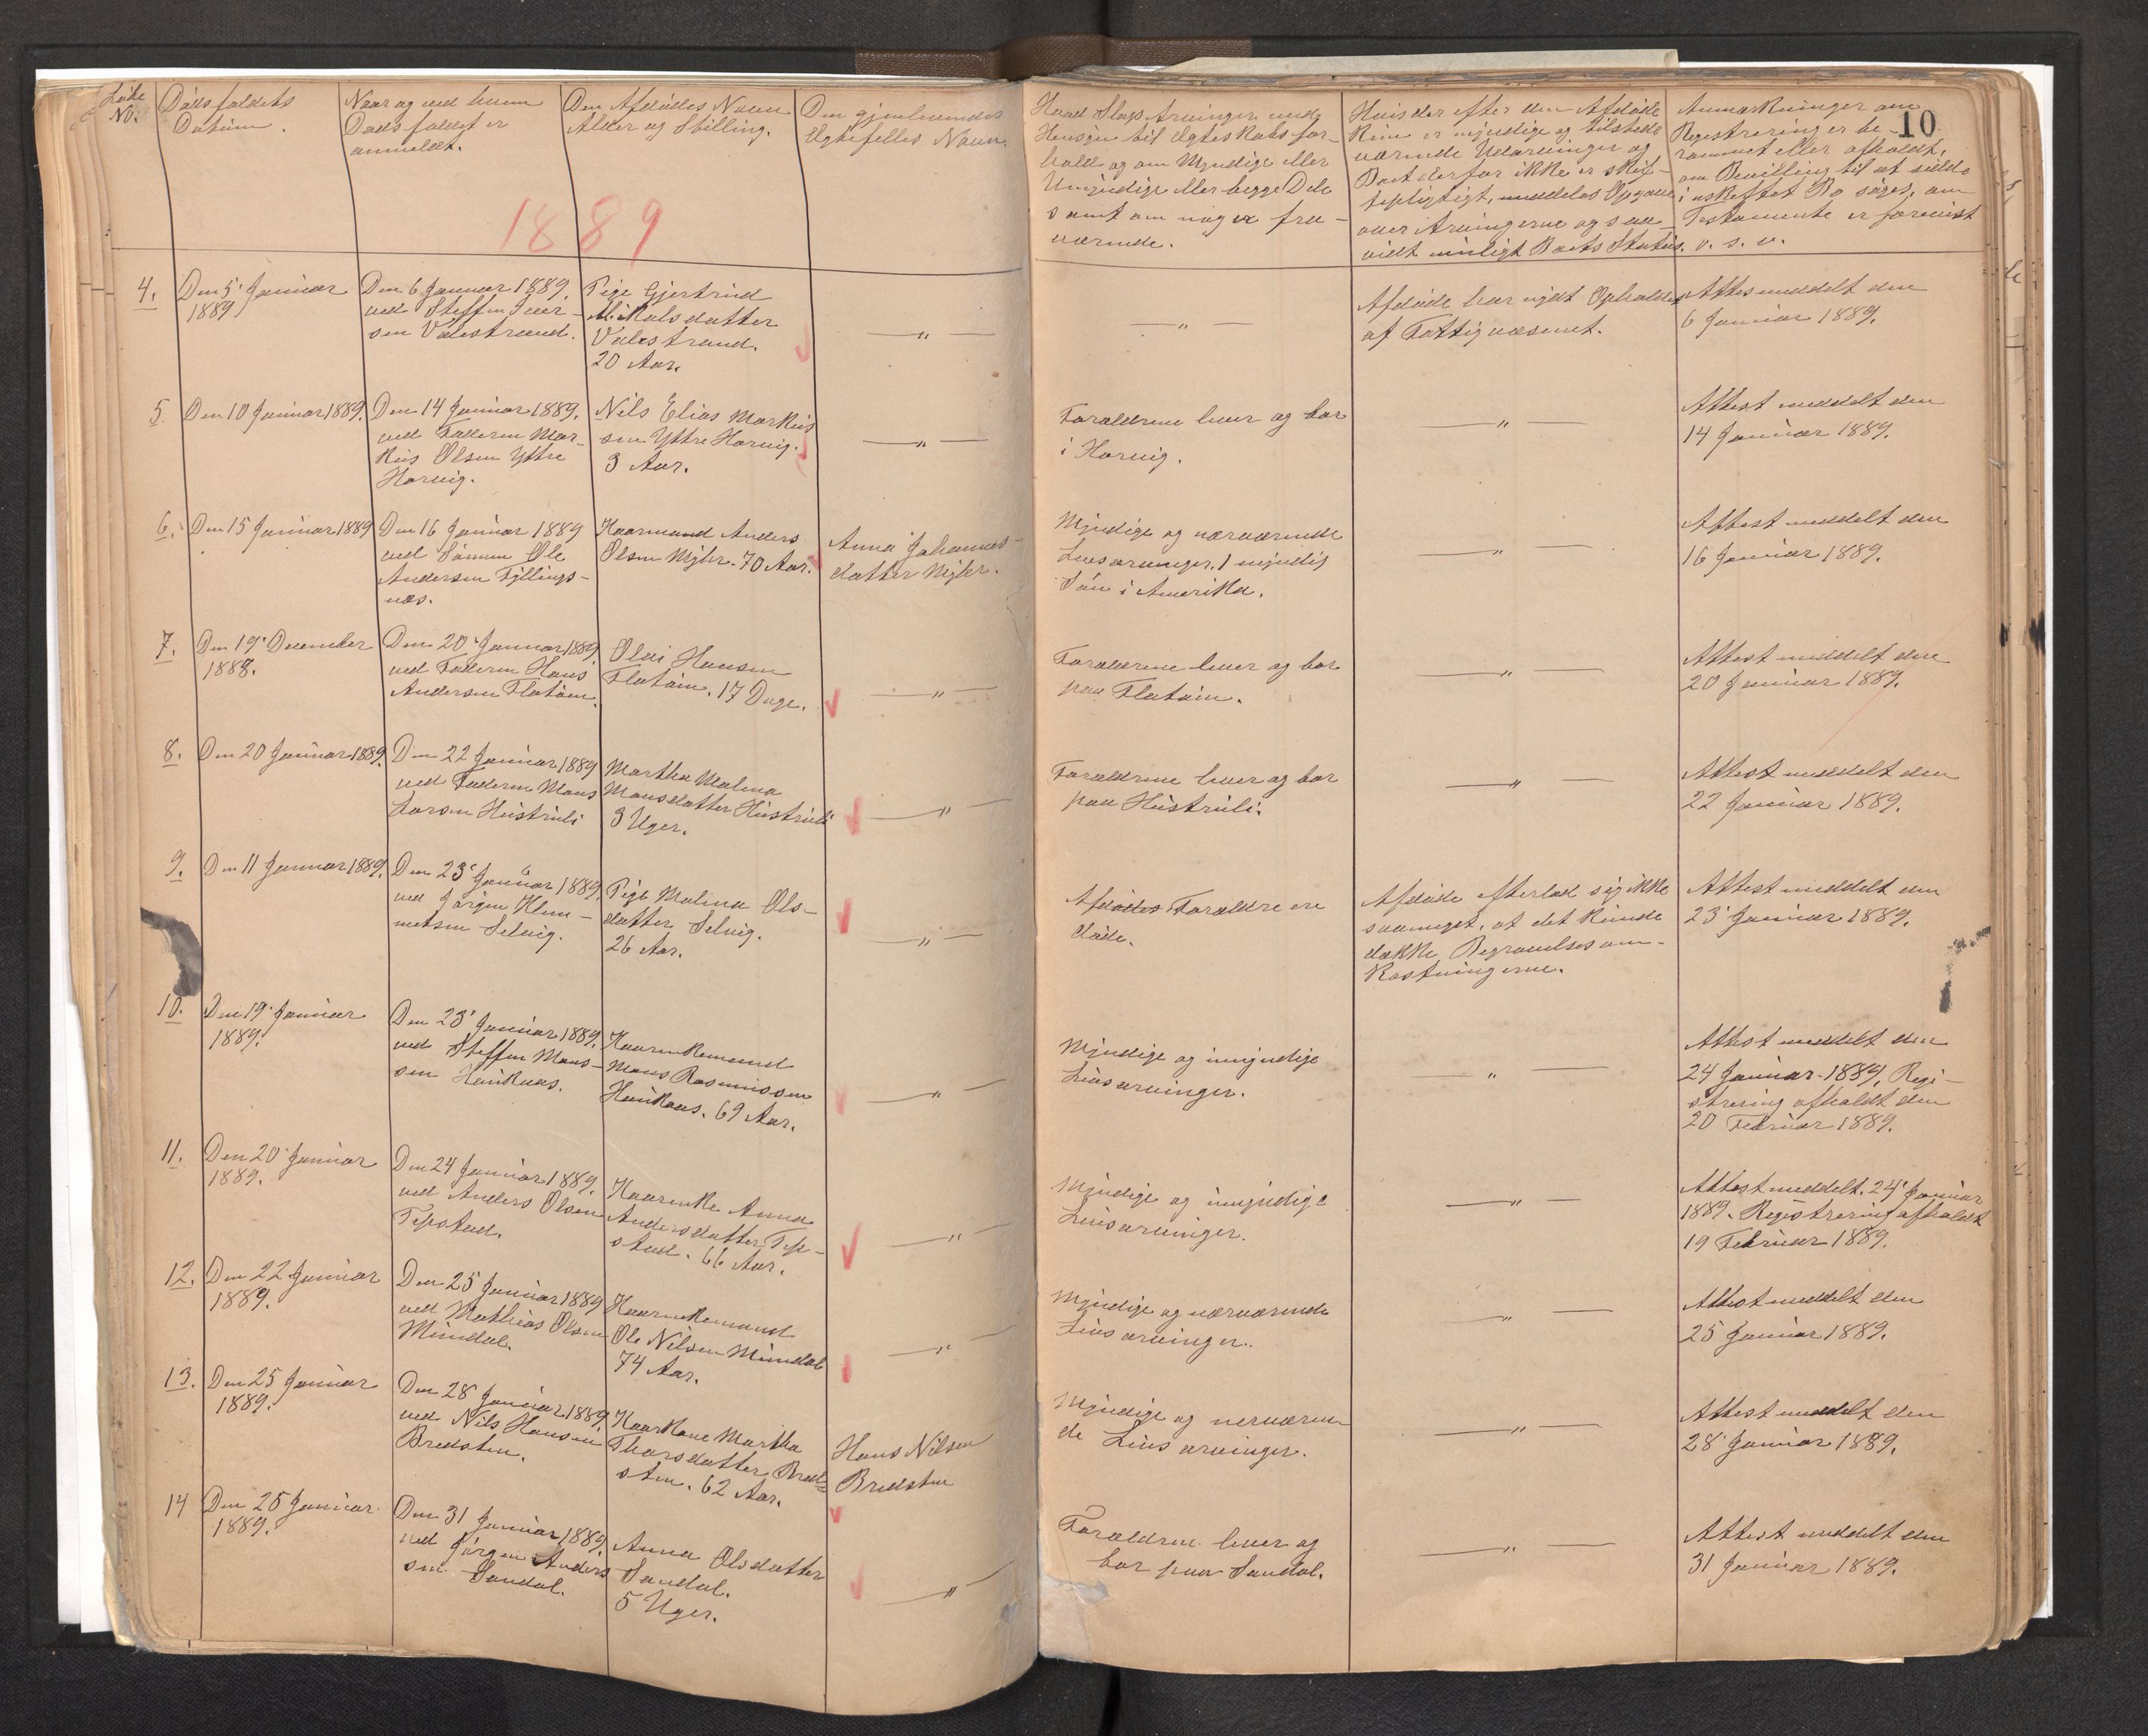 Løbe
No.
Dødsfaldets
Datum.
Naar og ved hvem
Dødsfaldet er
anmeldt.
Den Afdødes Navn
Alder og Stilling.
Den gjenlevendes
Ægtefelles Navn.
Hvad Slags Arvinger med
Hensyn til Ægteskabsfor-
hold og om Myndige eller
Umyndige eller begge Dele
samt om nogen fra-
værende.
Hvis der efter den Afdøde
Kun er myndige og tilstede
værende Udarvinger og
Boet derfor ikke er skif-
tepligtigt, meddeles Opgave
over Arvingerne og saa
vidt muligt Boets Status.
Anmærkninger om
Registrering er be-
rammet eller afholdt,
om Bevilling til at sidde
i uskiftet Bo søges, om
Testamente er forevist
o. s. v.
10
1889
4.
Den 5' Januar
1889
Den 6 Januar 1889.
ved Steffen Iver-
sen Valestrand.
Pige Gjertrud
Mikalsdatter
Valestrand.
20 Aar.
— " —
— " —
Afdøde har nydt Ophold
af Fattigvæsenet.
Attest meddelt den
6 Januar 1889.
5.
Den 10 Januar 1889.
Den 14 Januar 1889.
ved Faderen Mar-
kus Olsen Yttre
Horvig.
Nils Elias Markus
sen Yttre Horvig.
3 Aar.
— " —
Forældrene lever og bor
i Horvig.
— " —
Attest meddelt den
14 Januar 1889.
6.
Den 15 Januar 1889
Den 16 Januar 1889
ved Sønnen Ole
Andersen Fyllings-
næs.
Kaarmand Anders
Olsen Myhr. 70 Aar.
Anna Johannes-
datter Myhr.
Myndige og nærværende
Livsarvinger. 1 myndig
Søn i Amerika.
— " —
Attest meddelt den
16 Januar 1889.
7.
Den 19' December
1888.
Den 20' Januar 1889
ved Faderen Hans
Andersen Flatøen.
Olai Hansen
Flatøen. 17 Dage.
— " —
Forældrene lever og bor
paa Flatøen.
— " —
Attest meddelt den
20 Januar 1889.
8.
Den 20 Januar 1889.
Den 22 Januar 1889
ved Faderen Mons
Larsen Hustruli
Martha Malena
Monsdatter Hustruli
3 Uger.
— " —
Forældrene lever og bor
paa Hustruli.
— " —
Attest meddelt den
22 Januar 1889.
9.
Den 11 Januar 1889.
Den 23' Januar 1889.
ved Jørgen Klem-
metsen Selvig.
Pige Malena Ols-
datter Selvig.
26 Aar.
— " —
Afdødes Forældre ere
døde.
Afdøde efterlod sig ikke
saameget, at det Kunde
dække Begravelsesom-
Kostningerne.
Attest meddelt den
23' Januar 1889.
10.
Den 19' Januar
1889.
Den 23' Januar 1889.
ved Steffen Mons-
sen Haukaas.
Kaarenkemand
Mons Rasmussen
Haukaas. 69 Aar.
— " —
Myndige og umyndige
Livsarvinger.
— " —
Attest meddelt den
24 Januar 1889. Regi-
strering afholdt den
20 Februar 1889.
11.
Den 20' Januar
1889.
Den 24 Januar 1889.
ved Anders Olsen
Tepstad.
Kaarenke Anna
Andersdatter Tep-
stad. 66 Aar.
— " —
Myndige og umyndige
Livsarvinger.
— " —
Attest meddelt. 24' Januar
1889. Registrering afholdt
19 Februar 1889.
12.
Den 22 Januar
1889.
Den 25 Januar 1889
ved Mathias Olsen
Mundal.
Kaarenkemand
Ole Nilsen Mundal
74 Aar.
— " —
Myndige og nærværende
Livsarvinger.
— " —
Attest meddelt den
25 Januar 1889.
13.
Den 25 Januar
1889.
Den 28 Januar 1889
ved Nils Hansen
Bredsten.
Kaarkone Martha
Thorsdatter Bred-
sten. 62 Aar.
Hans Nilsen
Bredsten
Myndige og nerværen-
de Livsarvinger.
— " —
Attest meddelt den
28' Januar 1889.
14
Den 25 Januar
1889.
Den 31 Januar 1889.
ved Jørgen Anders
sen Sandal.
Anna Olsdatter
Sandal.
5 Uger.
— " —
Forældrene lever og
bor paa Sandal.
— " —
Attest meddelt den
31 Januar 1889.